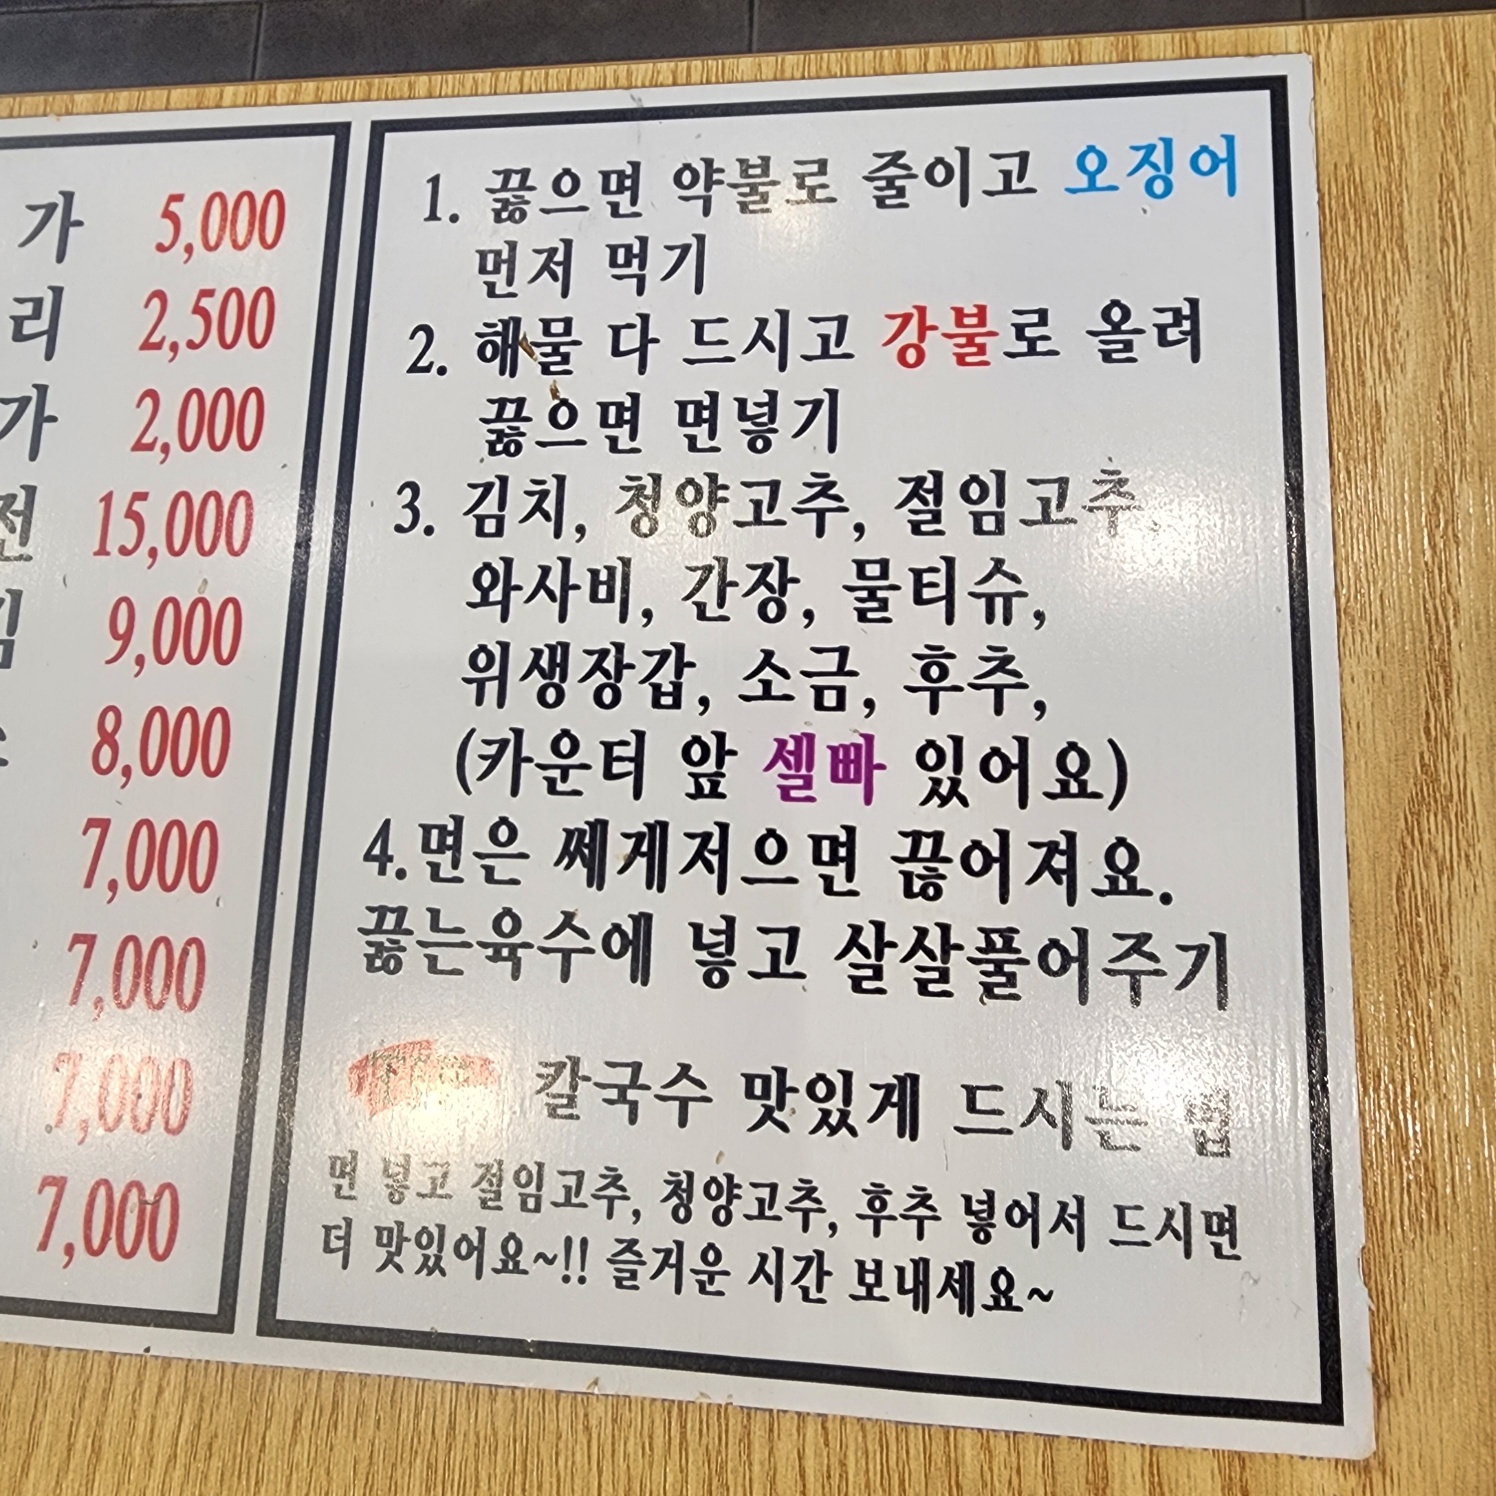 가 5,000
리 2,500
가 2,000
전 15,000
9,000
8,000
7,000
7,000
7,000
7,000
1. 끓으면 약불로 줄이고 오징어
먼저 먹기
2. 해물 다 드시고 강불로 올려
끓으면 면넣기
3. 김치, 청양고추, 절임고추,
와사비, 간장, 물티슈,
위생장갑, 소금, 후추,
(카운터 앞 셀빠 있어요)
4.면은 쎄게저으면 끊어져요.
끓는육수에 넣고 살살풀어주기
칼국수 맛있게 드시는 법
면 넣고 절임고추, 청양고추, 후추 넣어서 드시면
더 맛있어요~!! 즐거운 시간 보내세요~